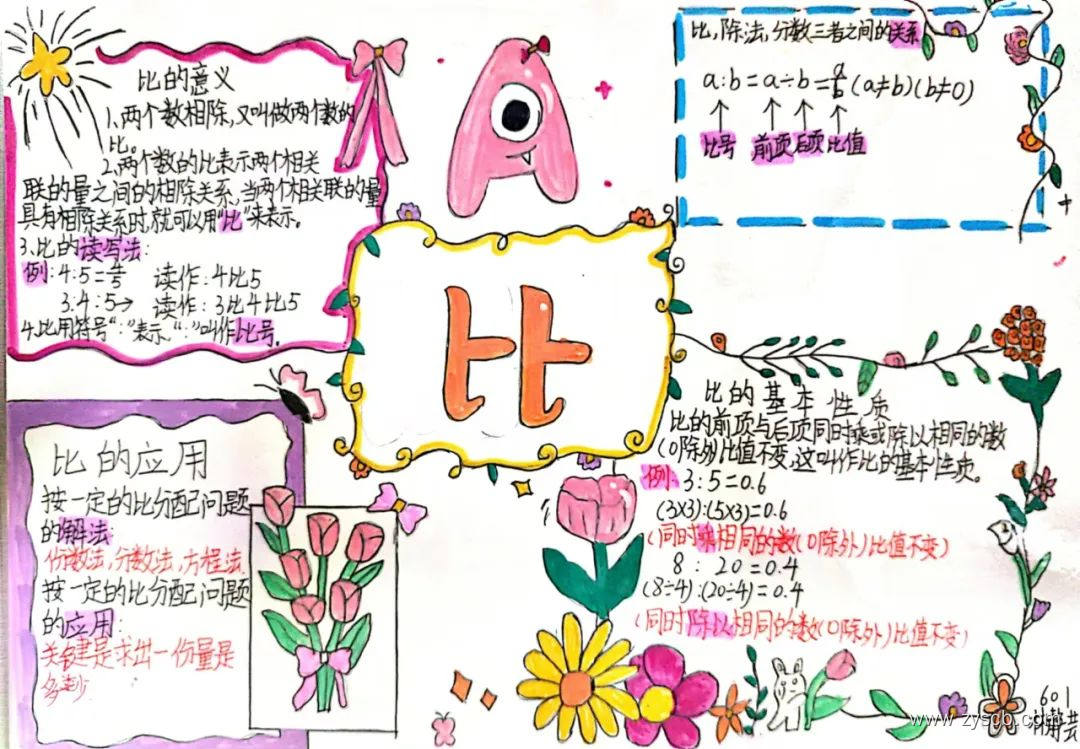 比的意义
1、两个数相除,又叫做两个数的
比。
2、两个数的比表示两个相关
联的量之间的相除关系,当两个相关联的量
具有相除关系时,就可以用"比"来表示。
3、比的读写法:
例:4:5=4/5 读作:4比5
3:4:5→ 读作:3比4比5
4、比用符号":"表示,":"叫作比号。
比
比,除法,分数三者之间的关系
a:b=a÷b=a/b(a≠b)(b≠0)
↑ ↑ ↑ ↑
比号 前项后项比值
比的应用
按一定的比分配问题
的解法:
份数法,分数法,方程法.
按一定的比分配问题
的应用:
关键是求出一份量是
多少.
比的基本性质
比的前项与后项同时乘或除以相同的数
(0除外)比值不变,这叫作比的基本性质。
例:3:5=0.6
(3×3):(5×3)=0.6
(同时乘相同的数(0除外)比值不变)
8:20=0.4
(8÷4):(20÷4)=0.4
(同时除以相同的数(0除外)比值不变)
601
www.zyscb.com